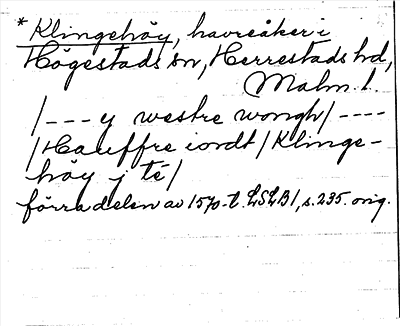 * Klingehöy, havreåker i
Högestads sn, Herrestads hd,
Malm. l.
/--- y westre wongh/ ----
/Hauffre iordt/ Klinge-
höy j té/
förra delen av 1570-t. LSLB1, s. 235. orig.